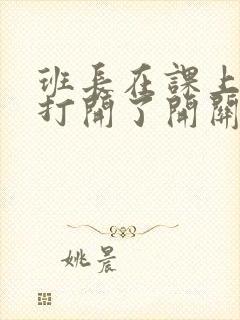 班長在課上
打開了開關
姚晨